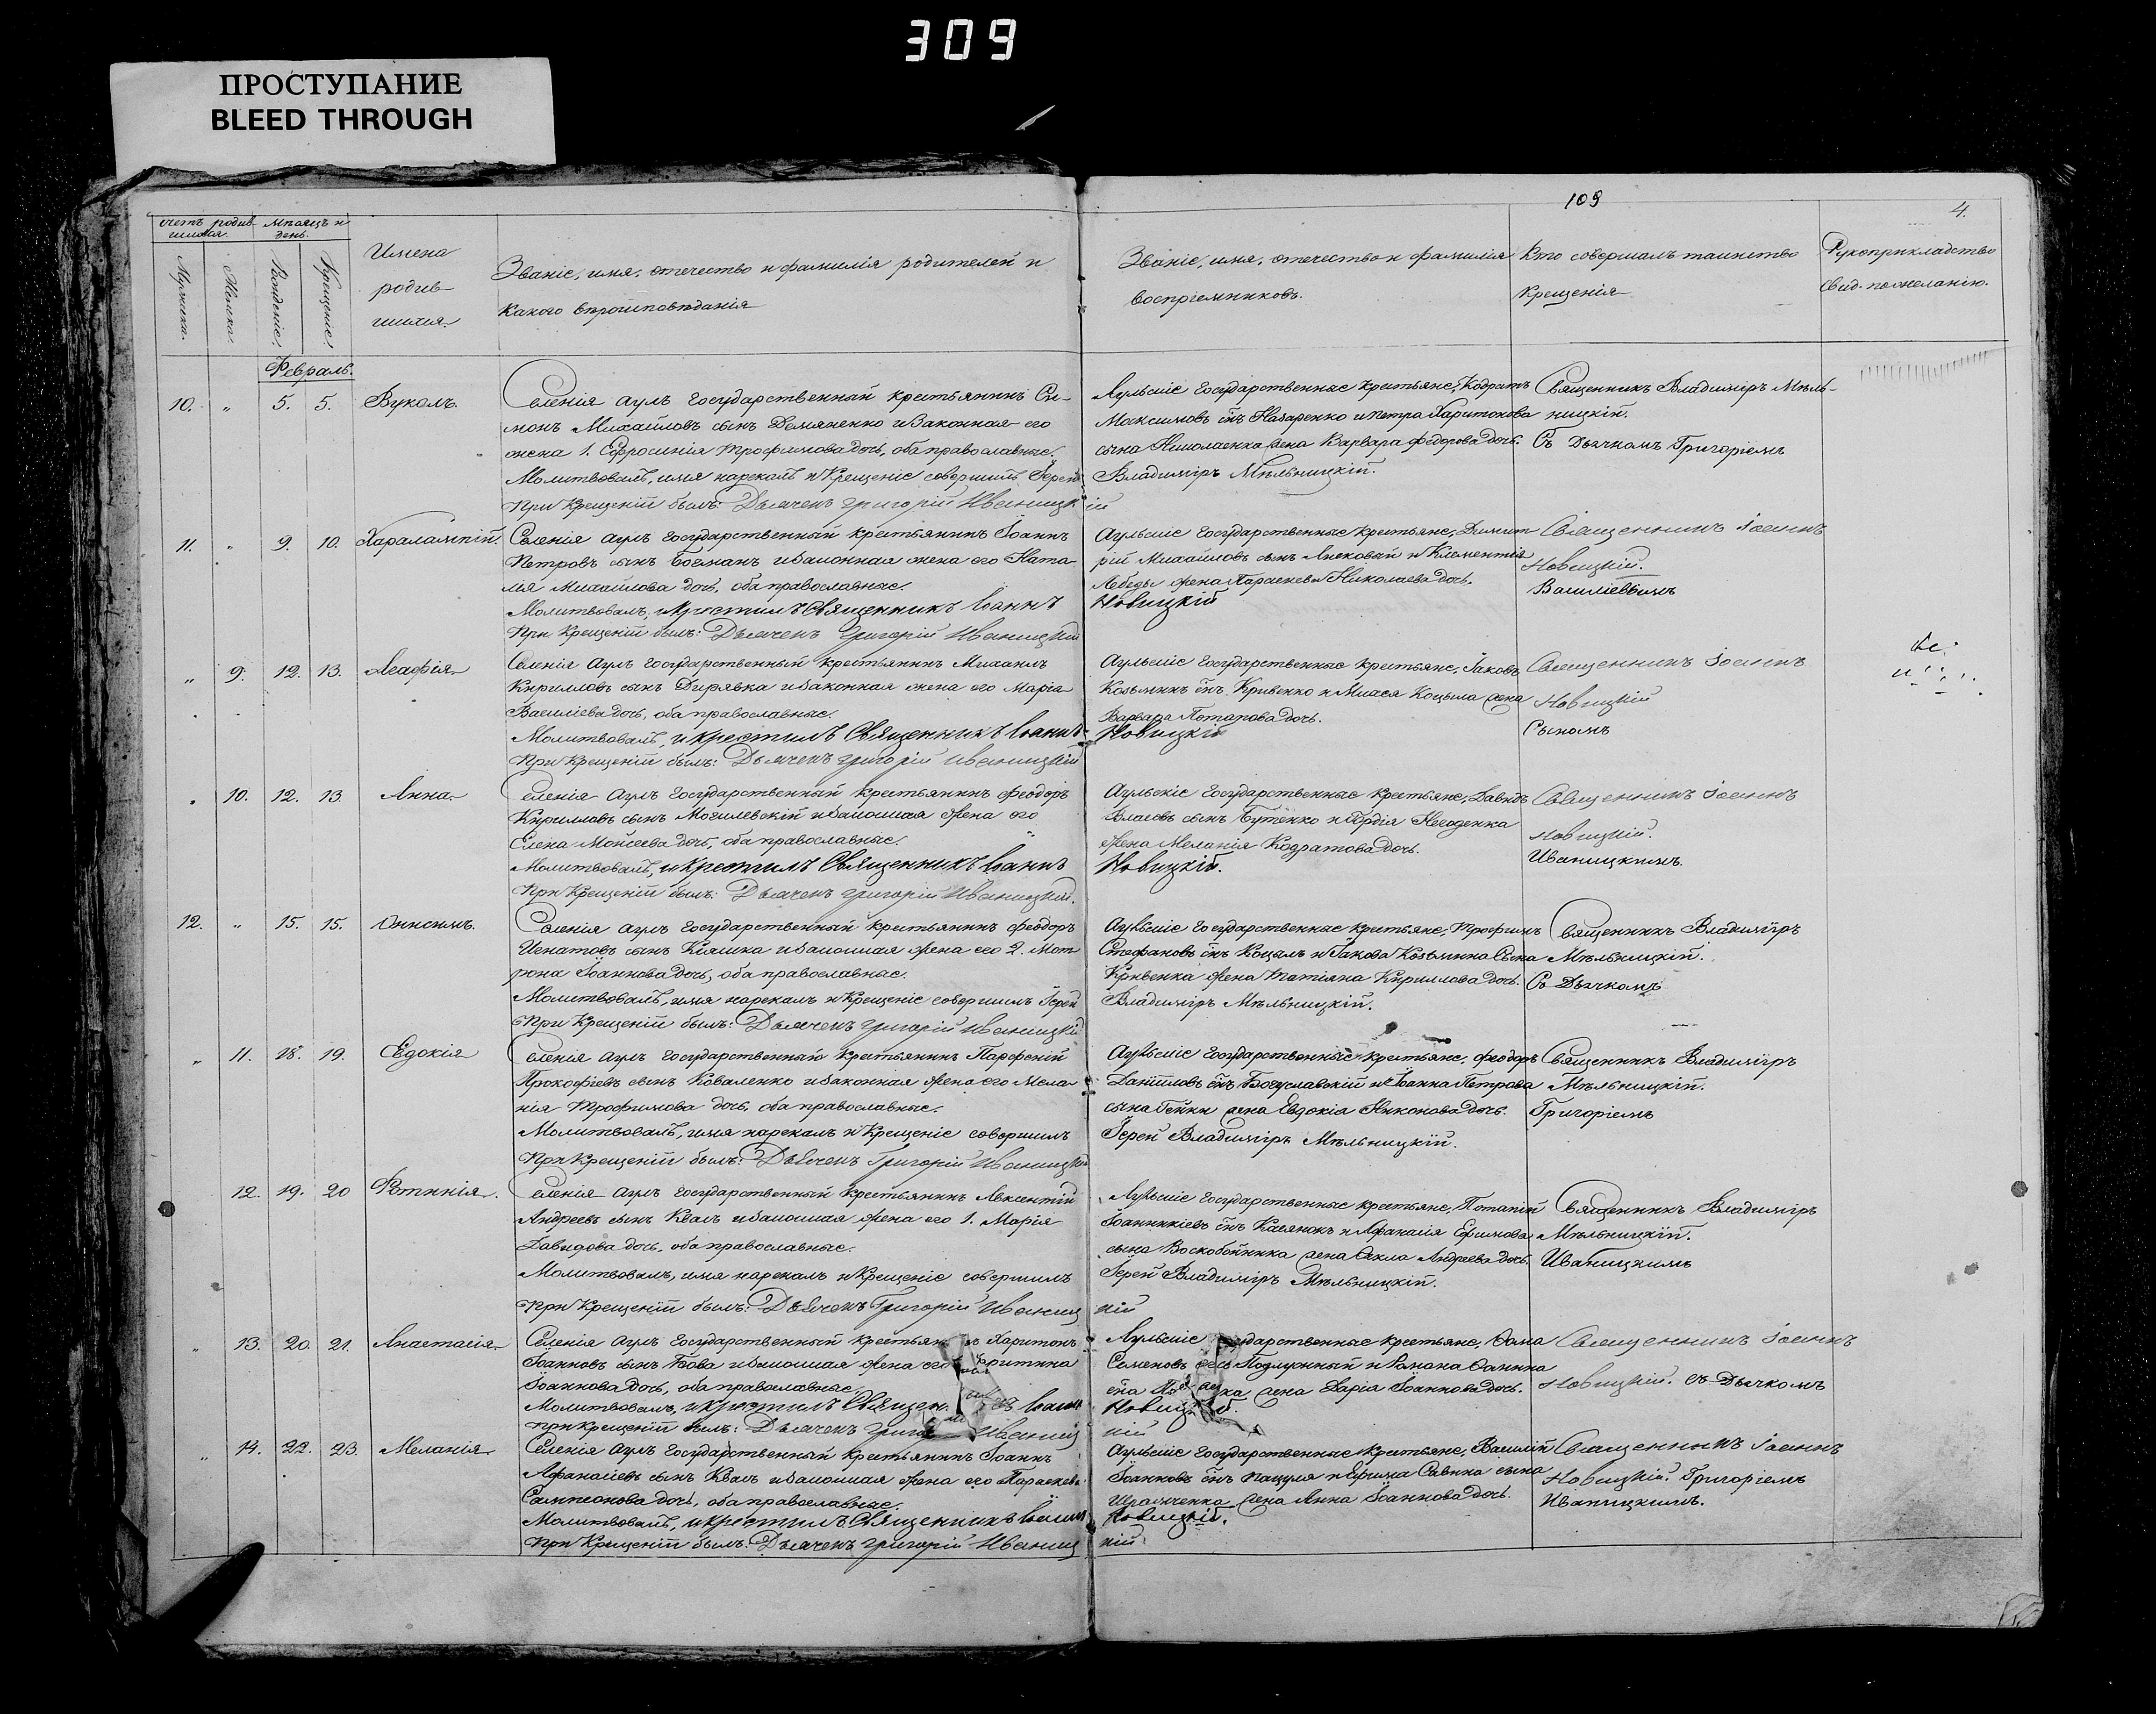 309
ПРОСТУПАНИЕ
BLEED THROUGH
109
4.
счетъ родив-
шихся.
Мѣсяцъ и
день.
Мужеска.
Женска.
Рожденіе.
Крещеніе.
Имена
родив-
шихся.
Званіе, имя, отчество и фамилія родителей и
какого вѣроисповѣданія
Званіе, имя, отчество и фамилія
воспріемниковъ.
Кто совершалъ таинство
Крещенія
Рукоприкладство
свид. по желанію.
Февраль.
10. „ 5. 5. Вуколъ.
Селенія Аулъ государственный крестьянинъ Си-
монъ Михайловъ сынъ Демяненко и законная его
жена 1. Ефросинія Трофимова дочь, оба православные.
Молитвовалъ, имя нарекалъ и Крещеніе совершилъ Іерей
При Крещеніи былъ: Дьячекъ Григорій Иваницкій
Аульскіе государственные крестьяне, Кодратъ
Максимовъ снъ Назаренко и Петра Харитонова
сына Николаенка жена Варвара Федорова дочь.
Владиміръ Мѣльницкій.
Священникъ Владиміръ Мѣль-
ницкій.
Съ Дьячкомъ Григоріемъ
11. „ 9. 10. Харалампій.
Селенія Аулъ государственный крестьянинъ Іоаннъ
Петровъ сынъ Боеманъ и законная жена его Ната-
лія Михайлова дочь, оба православные.
Молитвовалъ, и крестилъ Священникъ Іоаннъ
При Крещеніи былъ: Дьячекъ Григорій Иваницкій
Аульскіе государственные крестьяне, Димит
рій Михайловъ сынъ и Климентія
Лебедь жена Параскева Николаева дочь.
Новицкій
Священникъ Іоаннъ
Новицкій.
Василіевымъ
„ 9. 12. 13. Агафія
Селенія Аулъ государственный крестьянинъ Михаилъ
Кирилловъ сынъ Дирявка и законная жена его Марія
Василіева дочь, оба православные.
Молитвовалъ, и крестилъ Священникъ Іоаннъ
При Крещеніи былъ: Дьячекъ Григорій Иваницкій
Аульскіе государственные крестьяне, Іаковъ
Козьминъ снъ Кривенко и Коцыла жена
Варвара Потапова дочь.
Новицкій
Священникъ Іоаннъ
Новицкій
„ 10. 12. 13. Анна
Селенія Аулъ государственный крестьянинъ Феодоръ
Кириловъ сынъ Могилевскій и законная жена его
Елена Моисеева дочь, оба православные.
Молитвовалъ, и крестилъ Священникъ Іоаннъ
При Крещеніи былъ: Дьячекъ Григорій Иваницкій.
Аульскіе государственные крестьяне, Давидъ
Власовъ сынъ Бутенко и Гордія Негоденка
жена Меланія Кодратова дочь.
Новицкій.
Священникъ Іоаннъ
Новицкій.
Иваницкимъ.
12. „ 15. 15. Онисимъ.
Селенія Аулъ государственный крестьянинъ Феодоръ
Игнатовъ сынъ Кіяшка и законная жена его 2. Мот-
рона Іоаннова дочь, оба православные.
Молитвовалъ, имя нарекалъ и Крещеніе совершилъ Іерей
При Крещеніи былъ: Дьячекъ Григорій Иваницкій
Аульскіе государственные крестьяне, Трофимъ
Стефановъ снъ Коцылъ и Іакова Козьмина сына
Кривенка жена Татіана Кирилова дочь.
Владиміръ Мѣльницкій.
Священникъ Владиміръ
Мѣльницкій.
Съ Дьячкомъ
„ 11. 18. 19. Евдокія
Селенія Аулъ государственный крестьянинъ Парфеній
Прокофіевъ сынъ Коваленко и законная жена его Мела-
нія Трофимова дочь, оба православные.
Молитвовалъ, имя нарекалъ и Крещеніе совершилъ
При Крещеніи былъ: Дьячекъ Григорій Иваницкій
Аульскіе государственные крестьяне, Феодоръ
Даніиловъ снъ Богуславскій и Іоанна Петрова
сына Гейки жена Евдокія Никонова дочь.
Іерей Владиміръ Мѣльницкій.
Священникъ Владиміръ
Мѣльницкій.
Григоріемъ
12. 19. 20 Фотинія.
Селенія Аулъ государственный крестьянинъ Авксентій
Андреевъ сынъ Квачъ и законная жена его 1. Марія
Давидова дочь, оба православные.
Молитвовалъ, имя нарекалъ и Крещеніе совершилъ
При Крещеніи былъ: Дьячекъ Григорій Иваниц
кій
Аульскіе государственные крестьяне, Потапій
Іоанникіевъ снъ Касянокъ и Афанасія Ефимова
сына Воскобойника жена Текла Андреева дочь.
Іерей Владиміръ Мѣльницкій.
Священникъ Владиміръ
Мѣльницкій.
Иваницкимъ
„ 13. 20. 21. Анастасія
Селенія Аулъ государственный крестьянинъ Харитонъ
Іоанновъ сынъ Бова и законная жена его
Іоаннова дочь, оба православные.
Молитвовалъ, и крестилъ Священ Іоанн
При Крещеніи былъ: Дьячекъ Григ Иваниц
кій
Аульскіе государственные крестьяне, Фома
Семеновъ Подлужный и Романа
жена Дарія Іоаннова дочь.
Священникъ Іоаннъ
Новицкій. съ Дьячкомъ
„ 14. 22. 23. Меланія
Селенія Аулъ государственный крестьянинъ Іоаннъ
Афанасіевъ сынъ Квачъ и законная жена его Параскева
Сампсонова дочь, оба православные.
Молитвовалъ, и крестилъ Священникъ Іоаннъ
При Крещеніи былъ: Дьячекъ Григорій Иваниц
кій
Аульскіе государственные крестьяне, Василій
Іоанновъ снъ Пацуля и Ефима Савина сына
жена Анна Іоаннова дочь.
Новицкій.
Священникъ Іоаннъ
Новицкій. Григоріемъ
Иваницкимъ.